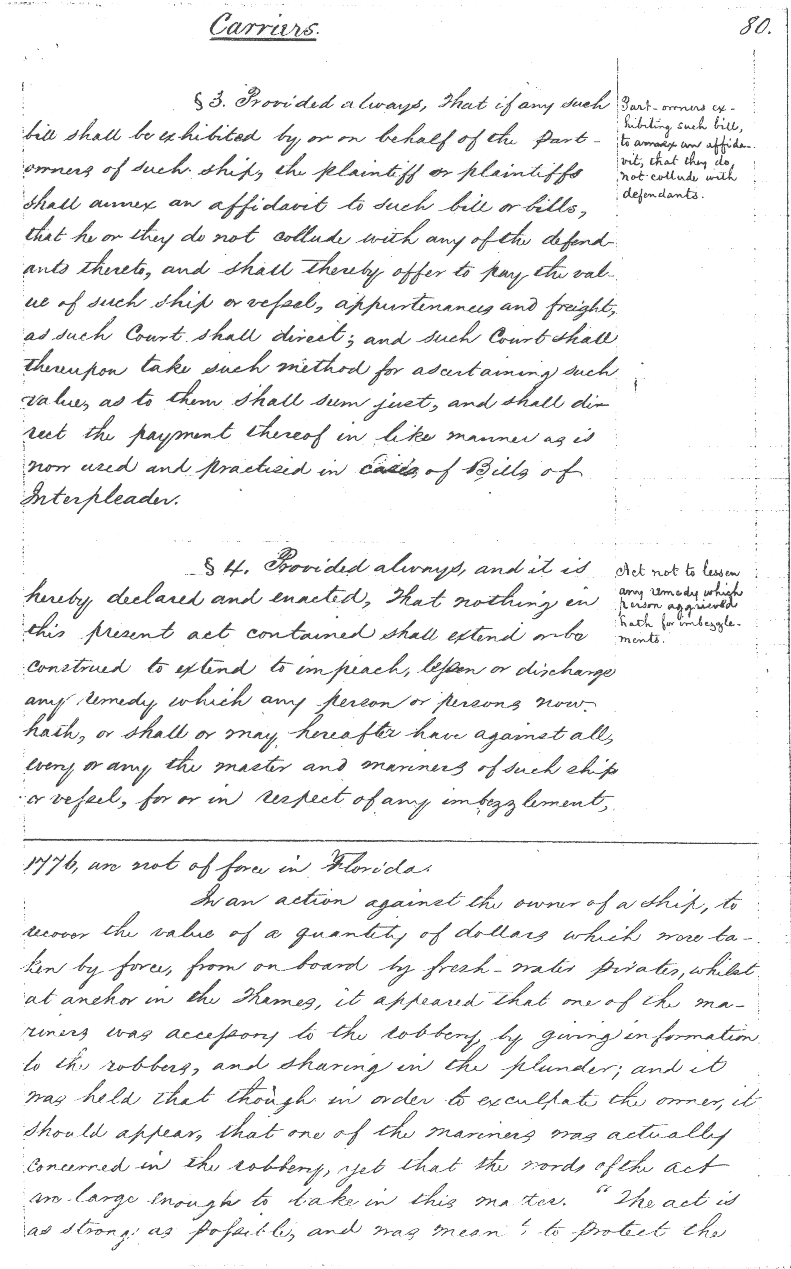 Carriers.
80.
§ 3. Provided always, That if any such
bill shall be exhibited by or on behalf of the part-
owners of such ship, the plaintiff or plaintiffs
shall annex an affidavit to such bill or bills,
that he or they do not collude with any of the defend-
ants thereto, and shall thereby offer to pay the val-
ue of such ship or vessel, appurtenances and freight,
as such Court shall direct; and such Court shall
thereupon take such method for ascertaining such
value, as to them shall seem just, and shall di-
rect the payment thereof in like manner as is
now used and practised in cases of Bills of
Interpleader.
Part-owners ex-
hibiting such bill,
to annex an affida-
vit, that they do,
not collude with
defendants.
§ 4. Provided always, and it is
hereby declared and enacted, That nothing in
this present act contained shall extend or be
construed to extend to impeach, lessen or discharge
any remedy which any person or persons now
hath, or shall or may hereafter have against all,
every or any the master and mariners of such ship
or vessel, for or in respect of any imbezzlement,
Act not to lessen
any remedy which
person aggrieved
hath for imbezzle-
ments.
1776, are not of force in Florida.
In an action against the owner of a ship, to
recover the value of a quantity of dollars which were ta-
ken by force, from on board by fresh-water pirates, whilst
at anchor in the Thames, it appeared that one of the ma-
riners was accessory to the robbery, by giving information
to the robbers, and sharing in the plunder; and it
was held that though in order to exculpate the owner, it
should appear, that one of the mariners was actually
concerned in the robbery, yet that the words of the act
are large enough to take in this matter. "The act is
as strong as possible, and was meant to protect the